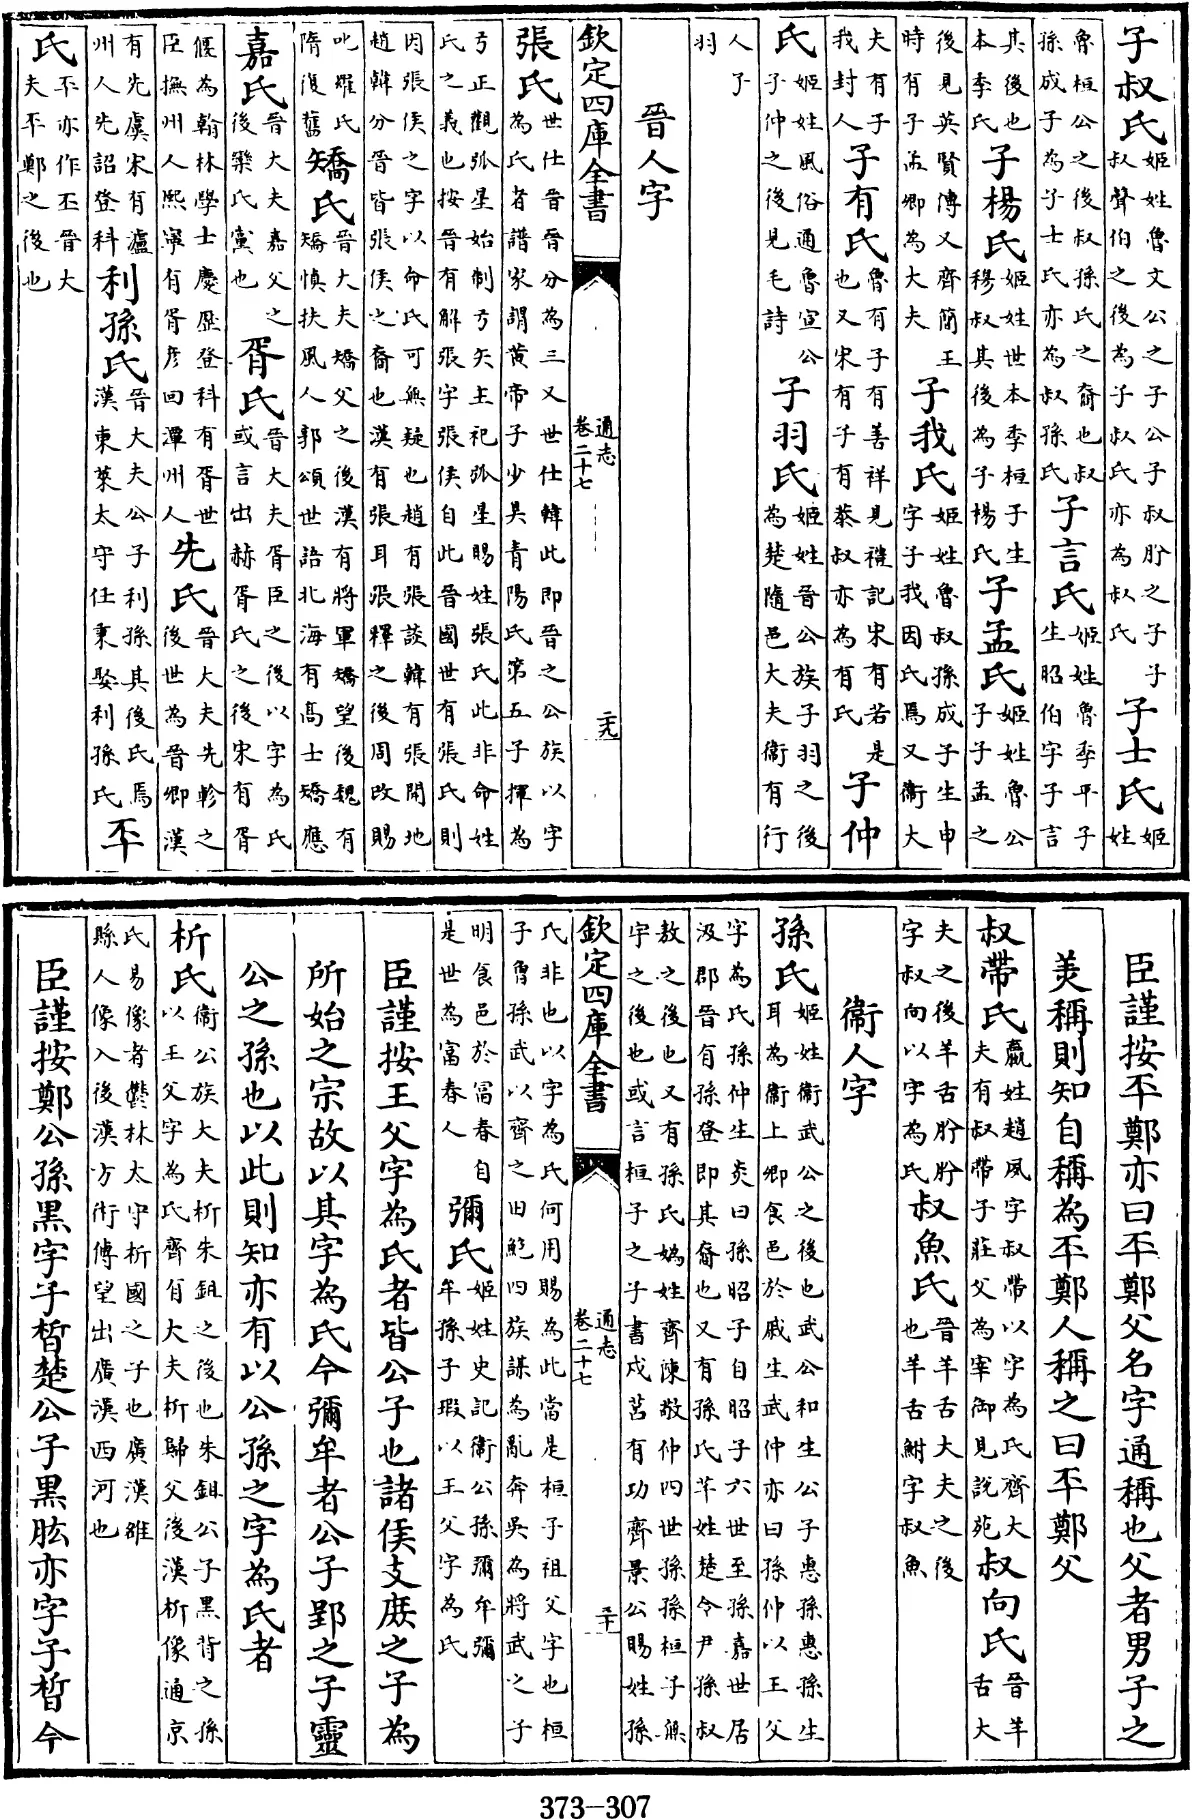 子叔氏姬姓魯文公之子公子叔肸之子子叔聲伯之後為子叔氏亦為叔氏子士氏姬姓
魯桓公之後叔孫氏之裔也叔孫成子為子士氏亦為叔孫氏子言氏姬姓魯季平子生昭伯字子言
其後也本季氏子楊氏姬姓世本季桓子生穆叔其後為子楊氏子孟氏姬姓魯公子子孟之
後見英賢傳又齊簡王時有子孟卿為大夫子我氏姬姓魯叔孫成子生申字子我因氏焉又衛大
夫有子我封人子有氏魯有子有善祥見禮記宋有若是也又宋有子有蔡叔亦為有氏子仲
氏姬姓風俗通魯宣公子仲之後見毛詩子羽氏姬姓晉公族子羽之後為楚隨邑大夫衛有行
人子羽
晉人字
欽定四庫全書 通志卷二十七 二十九
張氏世仕晉晉分為三又世仕韓此即晉之公族以字為氏者譜家謂黃帝子少昊青陽氏第五子揮為
弓正觀弧星始制弓矢主祀弧星賜姓張氏此非命姓氏之義也按晉有解張字張侯自此晉國世有張氏則
因張侯之字以命氏可無疑也趙有張談韓有張開地趙韓分晉皆張侯之裔也漢有張耳張釋之後周改賜
叱羅氏隋復舊矯氏晉大夫矯父之後漢有將軍矯望後魏有矯慎扶風人郭頌世語北海有高士矯應
嘉氏晉大夫嘉父之後欒氏黨也胥氏晉大夫胥臣之後以字為氏或言出赫胥氏之後宋有胥
偃為翰林學士慶歷登科有胥世臣撫州人熙寧有胥彥回潭州人先氏晉大夫先軫之後世為晉卿漢
有先虞宋有瀘州人先詔登科利孫氏晉大夫公子利孫其後氏焉漢東萊太守任東娶利孫氏㔻
氏㔻亦作丕晉大夫㔻鄭之後也
臣謹按㔻鄭亦曰㔻鄭父名字通稱也父者男子之
美稱則知自稱為㔻鄭人稱之曰㔻鄭父
叔帶氏嬴姓趙夙字叔帶以字為氏齊大夫有叔帶子莊父為宰御見說苑叔向氏晉羊舌大
夫之後羊舌肸肸字叔向以字為氏叔魚氏晉羊舌大夫之後也羊舌鮒字叔魚
衛人字
孫氏姬姓衛武公之後也武公和生公子惠孫惠孫生耳為衛上卿食邑於戚生武仲亦曰孫仲以王父
字為氏孫仲生炎曰孫昭子自昭子六世至孫嘉世居汲郡晉有孫登即其裔也又有孫氏羋姓楚令尹孫叔
敖之後也又有孫氏媯姓齊陳敬仲四世孫孫桓子無宇之後也或言桓子之子書戍莒有功齊景公賜姓孫
欽定四庫全書 通志卷二十七 三十
氏非也以字為氏何用賜為此當是桓子祖父字也桓子魯孫武以齊之田鮑四族謀為亂奔吳為將武之子
明食邑於富春自是世為富春人彌氏姬姓史記衛公孫彌牟彌牟孫子瑕以王父字為氏
臣謹按王父字為氏者皆公子也諸侯支庶之子為
所始之宗故以其字為氏今彌牟者公子郢之子靈
公之孫也以此則知亦有以公孫之字為氏者
析氏衛公族大夫析朱鉏之後也朱鉏公子黑背之孫以王父字為氏齊有大夫析歸父後漢析像通京
氏易像者鬱林太守析國之子也廣漢雒縣人像入後漢方術傳望出廣漢西河也
臣謹按鄭公孫黑字子晳楚公子黑肱亦字子晳今
373-307